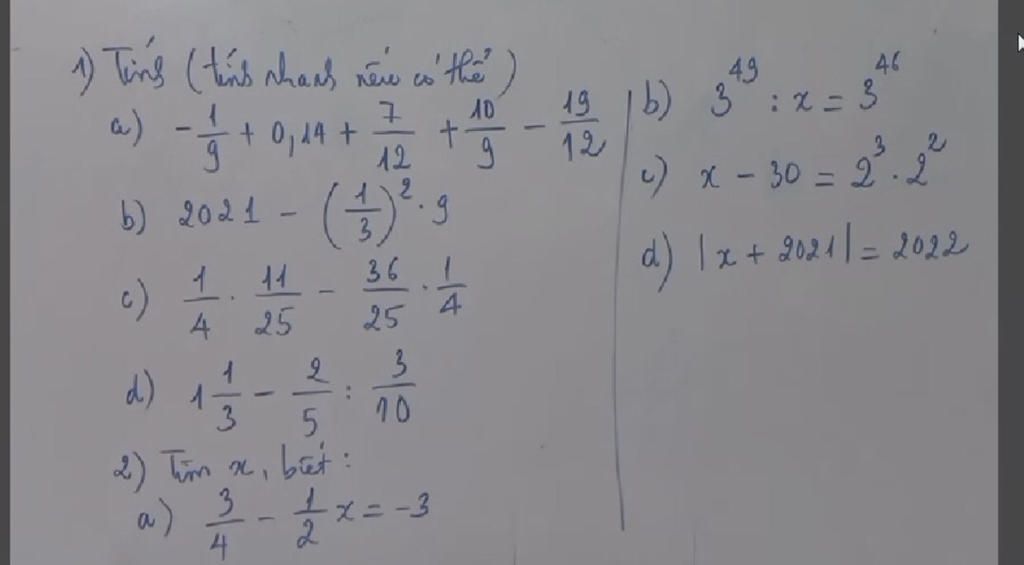 1) Tính (tính nhanh nếu có thể)
a) -1/9 + 0,14 + 7/12 + 10/9 - 19/12
b) 2021 - (1/3)² . 9
c) 1/4 . 11/25 - 36/25 . 1/4
d) 1 1/3 - 2/5 : 3/10
2) Tìm x, biết:
a) 3/4 - 1/2 x = -3
b) 3⁴⁹ : x = 3⁴⁶
c) x - 30 = 2³ . 2²
d) |x + 2021| = 2022